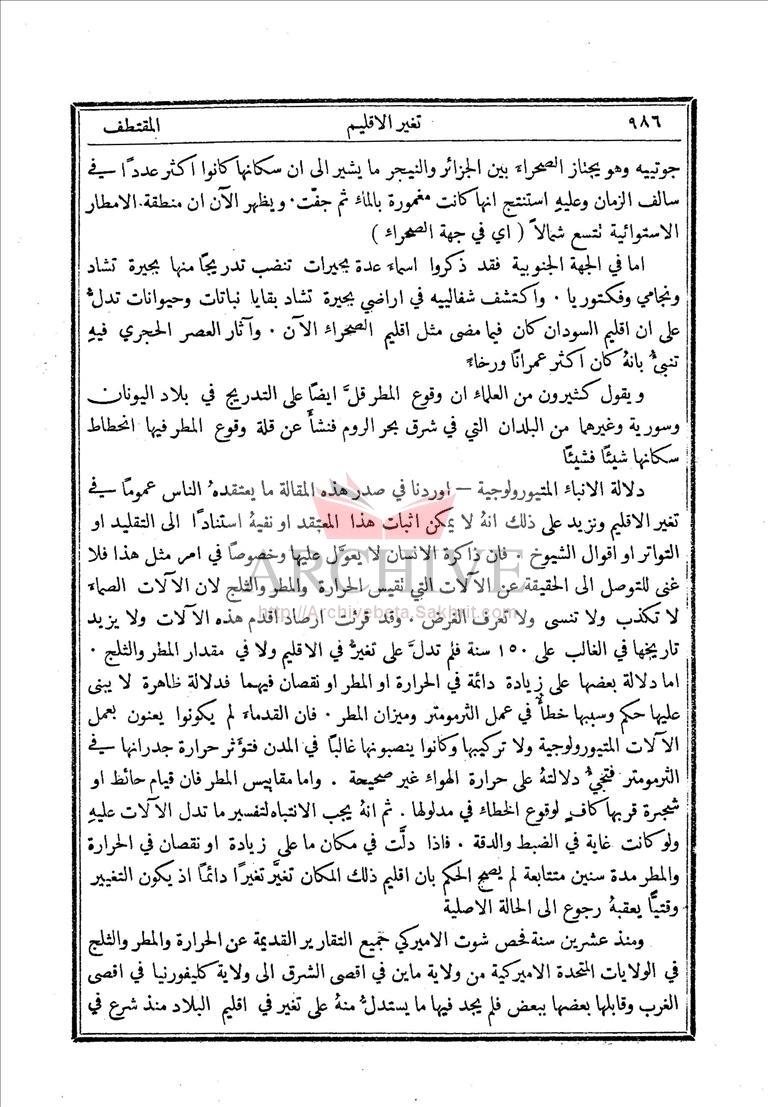 ٩٨٦ تغير الاقليم المقتطف
جوتييه وهو يجناز الصحراء بين الجزائر والنيجر ما يشير الى ان سكانها كانوا اكثر عددًا في
سالف الزمان وعليهِ استنتج انها كانت مغمورة بالماء ثم جفّت. ويظهر الآن ان منطقة الامطار
الاستوائية تتسع شمالاً ( اي في جهة الصحراء )
اما في الجهة الجنوبية فقد ذكروا اسماء عدة بحيرات تنضب تدريجًا منها بحيرة تشاد
ونجامي وفكتوريا . واكتشف شفالييه في اراضي بحيرة تشاد بقايا نباتات وحيوانات تدلُّ
على ان اقليم السودان كان فيما مضى مثل اقليم الصحراء الآن . وآثار العصر الحجري فيهِ
تنبئُ بانهُ كان اكثر عمرانًا ورخاءً
ويقول كثيرون من العلماء ان وقوع المطر قلَّ ايضًا على التدريج في بلاد اليونان
وسورية وغيرهما من البلدان التي في شرق بحر الروم فنشأَ عن قلة وقوع المطر فيها انحطاط
سكانها شيئًا فشيئًا
دلالة الانباء المتيورولوجية — اوردنا في صدر هذه المقالة ما يعتقدهُ الناس عمومًا في
تغير الاقليم ونزيد على ذلك انهُ لا يمكن اثبات هذا المعتقد او نفيهُ استنادًا الى التقليد او
التواتر او اقوال الشيوخ . فان ذاكرة الانسان لا يعوَّل عليها وخصوصًا في امر مثل هذا فلا
غنى للتوصل الى الحقيقة عن الآلات التي تقيس الحرارة والمطر والثلج لان الآلات الصماء
لا تكذب ولا تنسى ولا تعرف الغرض . وقد قرئت ارصاد اقدم هذه الآلات ولا يزيد
تاريخها في الغالب على ١٥٠ سنة فلم تدلَّ على تغيرٍ في الاقليم ولا في مقدار المطر والثلج .
اما دلالة بعضها على زيادة دائمة في الحرارة او المطر او نقصان فيهما فدلالة ظاهرة لا يبنى
عليها حكم وسببها خطأٌ في عمل الثرمومتر وميزان المطر . فان القدماء لم يكونوا يعنون بعمل
الآلات المتيورولوجية ولا تركيبها وكانوا ينصبونها غالبًا في المدن فتؤثر حرارة جدرانها في
الثرمومتر فتجيءُ دلالتهُ على حرارة الهواء غير صحيحة . واما مقاييس المطر فان قيام حائط او
شجرة قربها كافٍ لوقوع الخطاء في مدلولها . ثم انهُ يجب الانتباه لتفسير ما تدل الآلات عليهِ
ولو كانت غاية في الضبط والدقة . فاذا دلَّت في مكان ما على زيادة او نقصان في الحرارة
والمطر مدة سنين متتابعة لم يصحَّ الحكم بان اقليم ذلك المكان تغيَّر تغيرًا دائمًا اذ يكون التغيير
وقتيًّا يعقبهُ رجوع الى الحالة الاصلية
ومنذ عشرين سنة فحص شوت الاميركي جميع التقارير القديمة عن الحرارة والمطر والثلج
في الولايات المتحدة الاميركية من ولاية ماين في اقصى الشرق الى ولاية كليفورنيا في اقصى
الغرب وقابلها بعضها ببعض فلم يجد فيها ما يستدلُّ منهُ على تغير في اقليم البلاد منذ شرع في
ARCHIVE
http://Archivebeta.Sakhrit.com